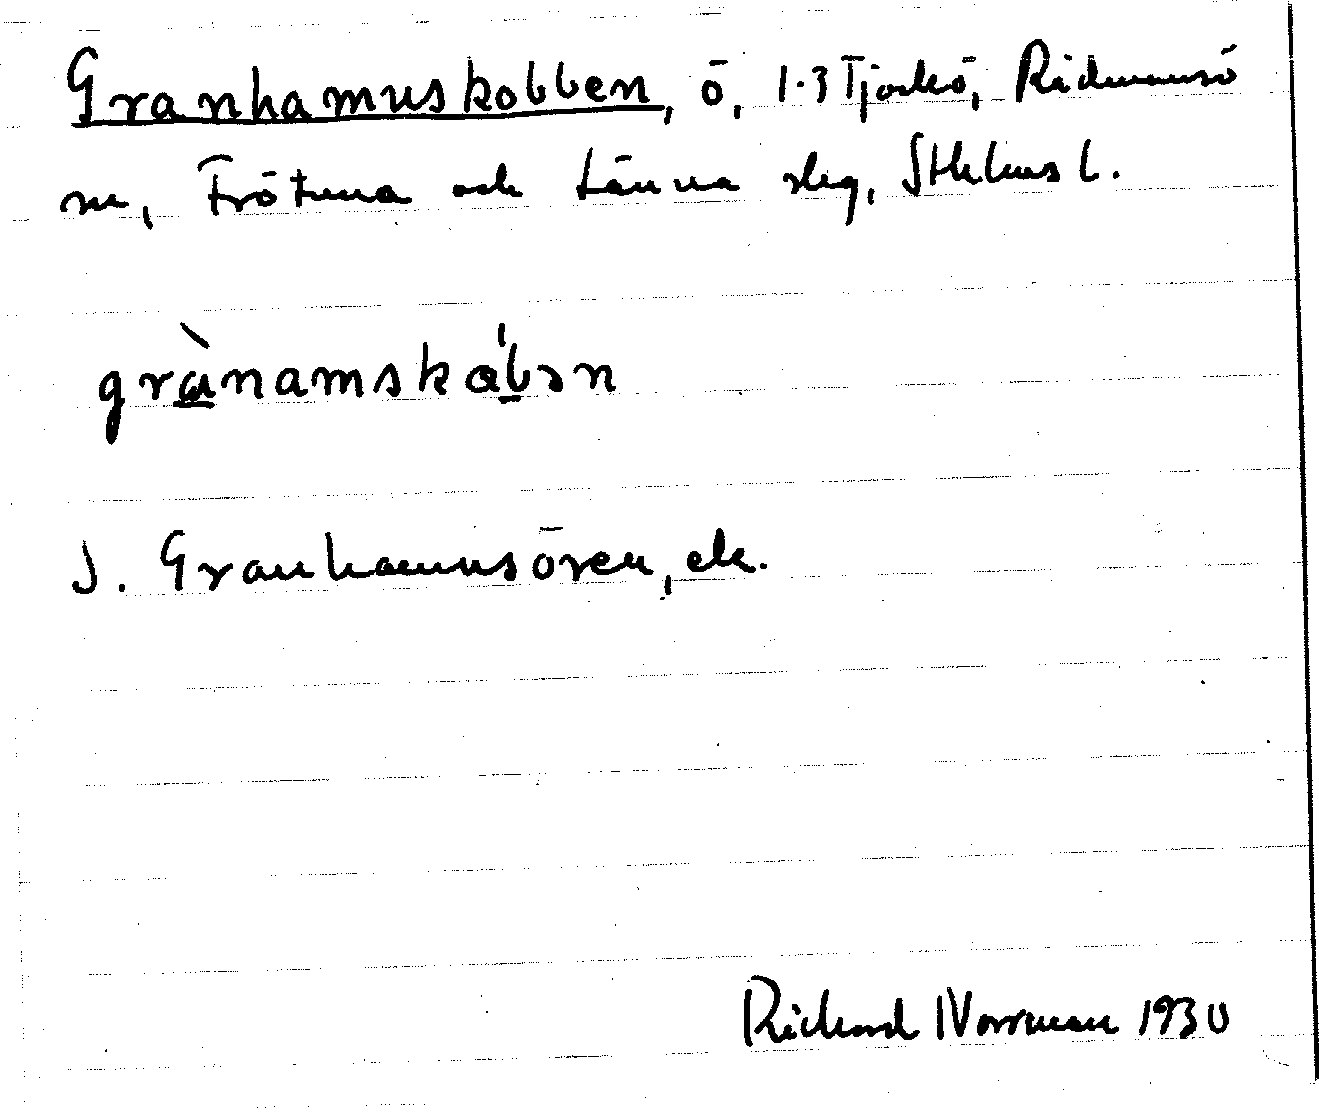 Granhamnskobben, ö, 1-3 Tjockö, Rådmansö
sn, Frötuna och Länna slg, Sthlms l.
grànamskábən
J. Granhamnsören, etc.
Richard Norrman 1930